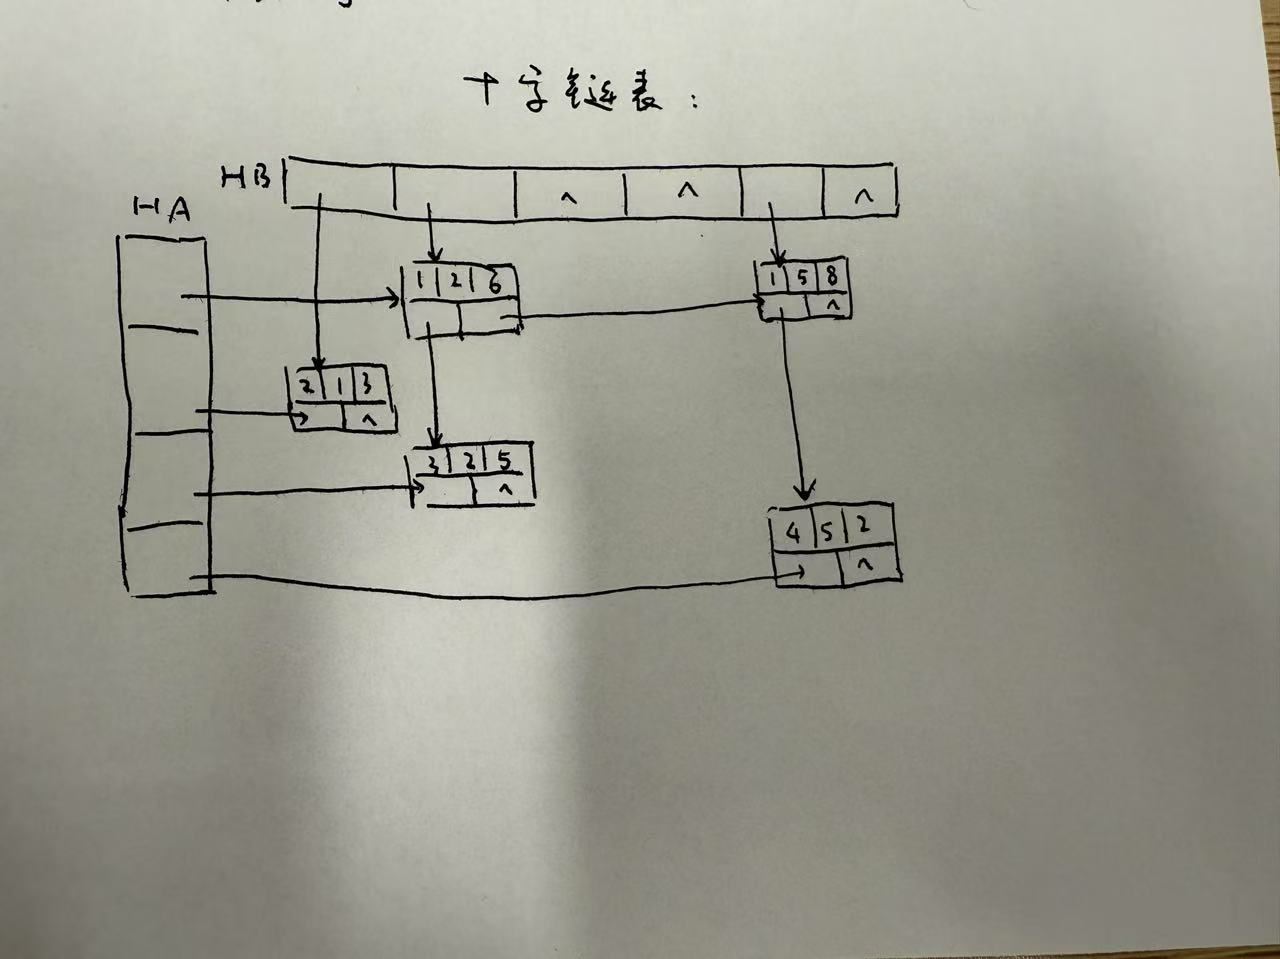 十字链表：
HB
^ ^ ^
HA
1 2 6
1 5 8
^
2 1 3
^
3 2 5
^
4 5 2
^